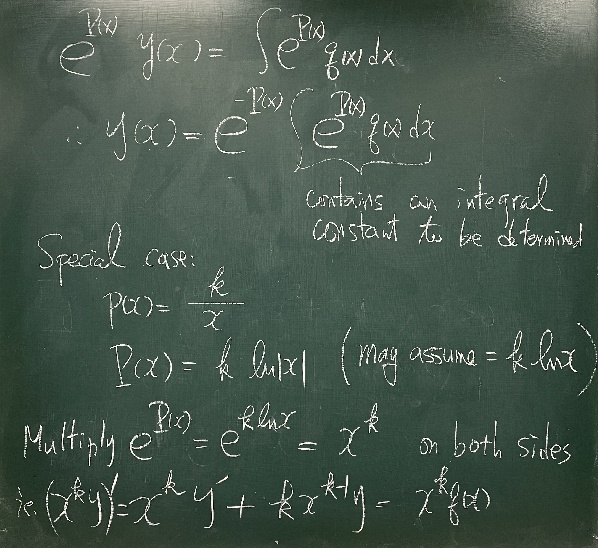 e^{P(x)} y(x) = ∫ e^{P(x)} q(x) dx
∴ y(x) = e^{-P(x)} ∫ e^{P(x)} q(x) dx
contains an integral
constant to be determined
Special case:
p(x) = k/x
P(x) = k ln|x| (may assume = k lnx)
Multiply e^{P(x)} = e^{k lnx} = x^k on both sides
ie. (x^k y)' = x^k y' + k x^{k-1} y = x^k q(x)